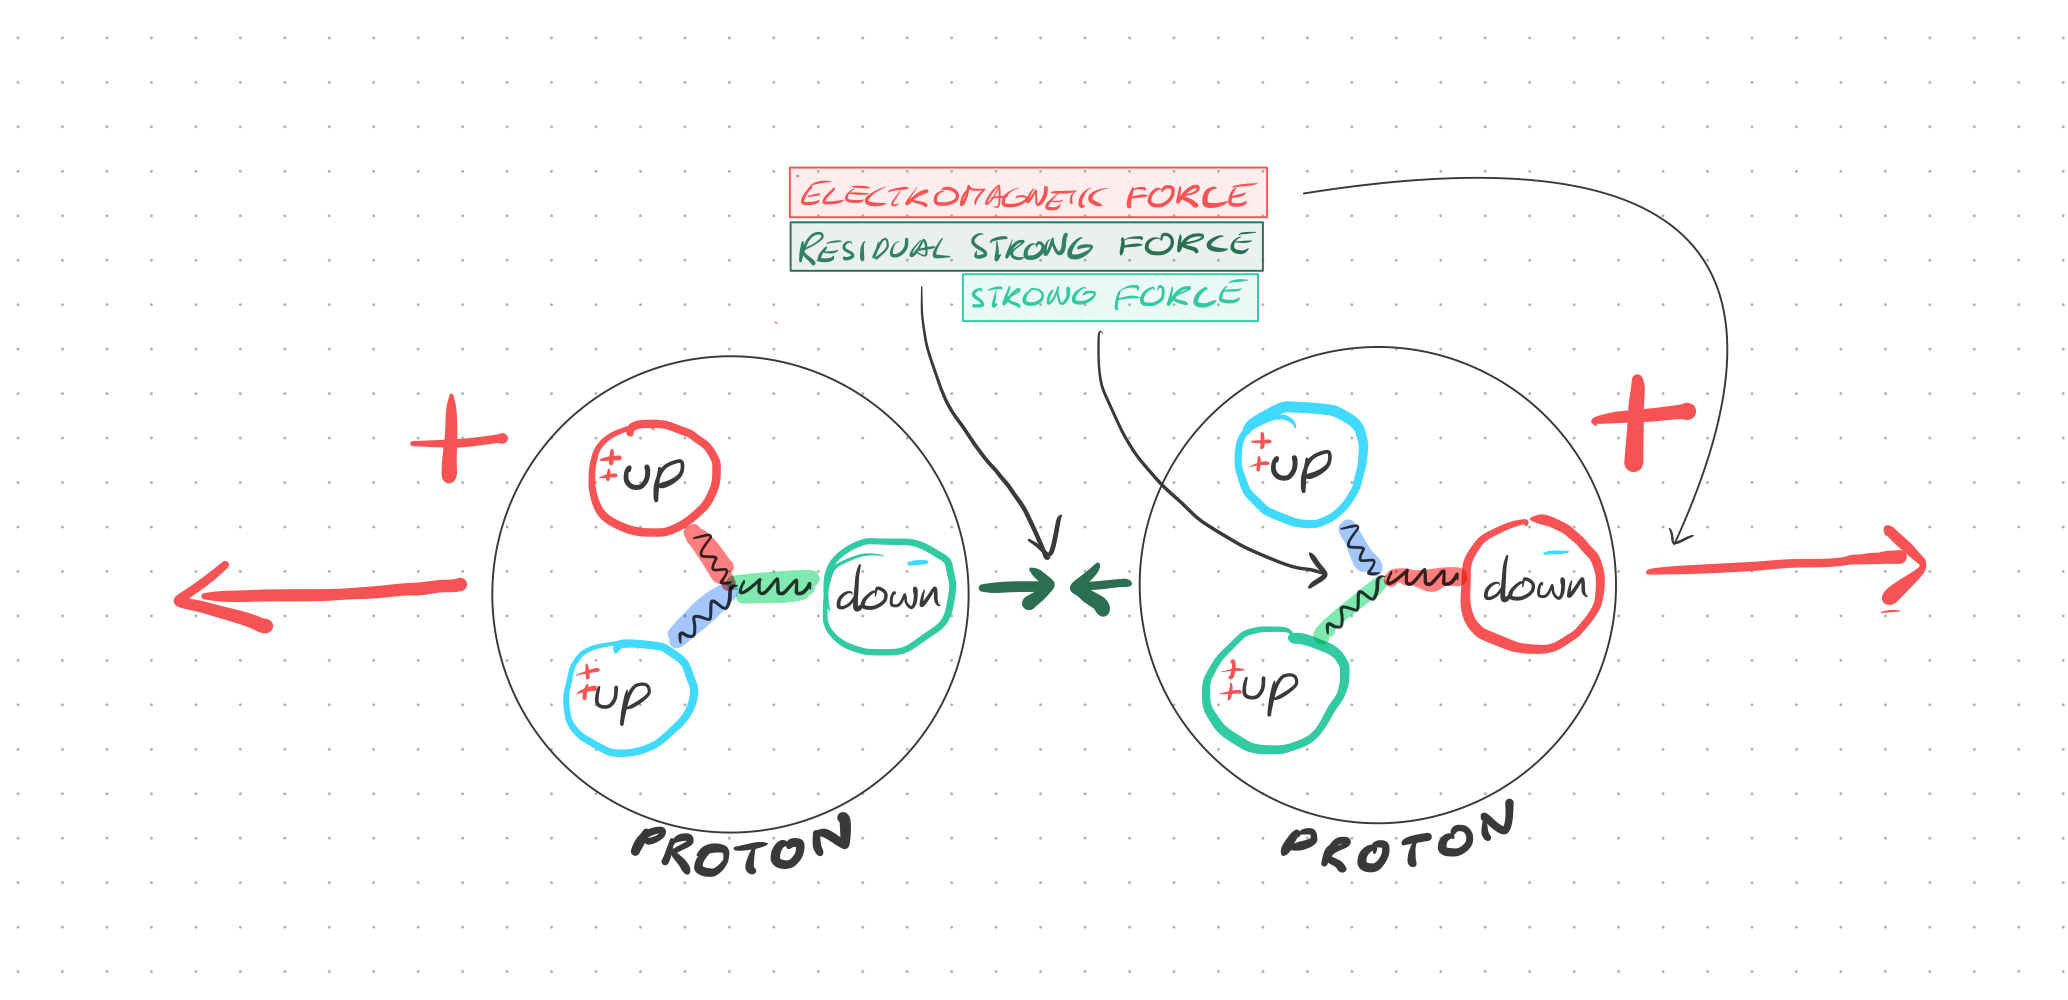 ELECTROMAGNETIC FORCE
RESIDUAL STRONG FORCE
STRONG FORCE
+
+
+
+ up
+
+ up
down -
+
+ up
+
+ up
down -
+
PROTON
PROTON